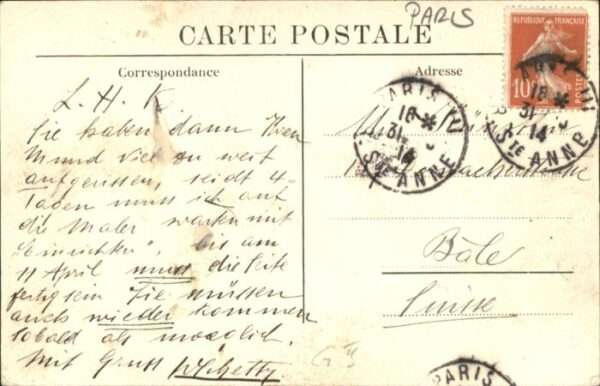 PARIS
CARTE POSTALE
Correspondance
Adresse
REPUBLIQUE FRANÇAISE
10
POSTES
L. H. K.
Sie haben dann Ihren
Mund viel zu weit
aufgerissen, seidt 4
Tagen muss ich auf
die Maler warten mit
"Einrichten", bis am
11 April muss die Seite
fertig sein Sie müssen
auch wieder kommen
sobald als moeglich.
Mit Gruss
PARIS
18
31
14
STE ANNE
18
31
14
STE ANNE
Bâle
Suisse
PARIS